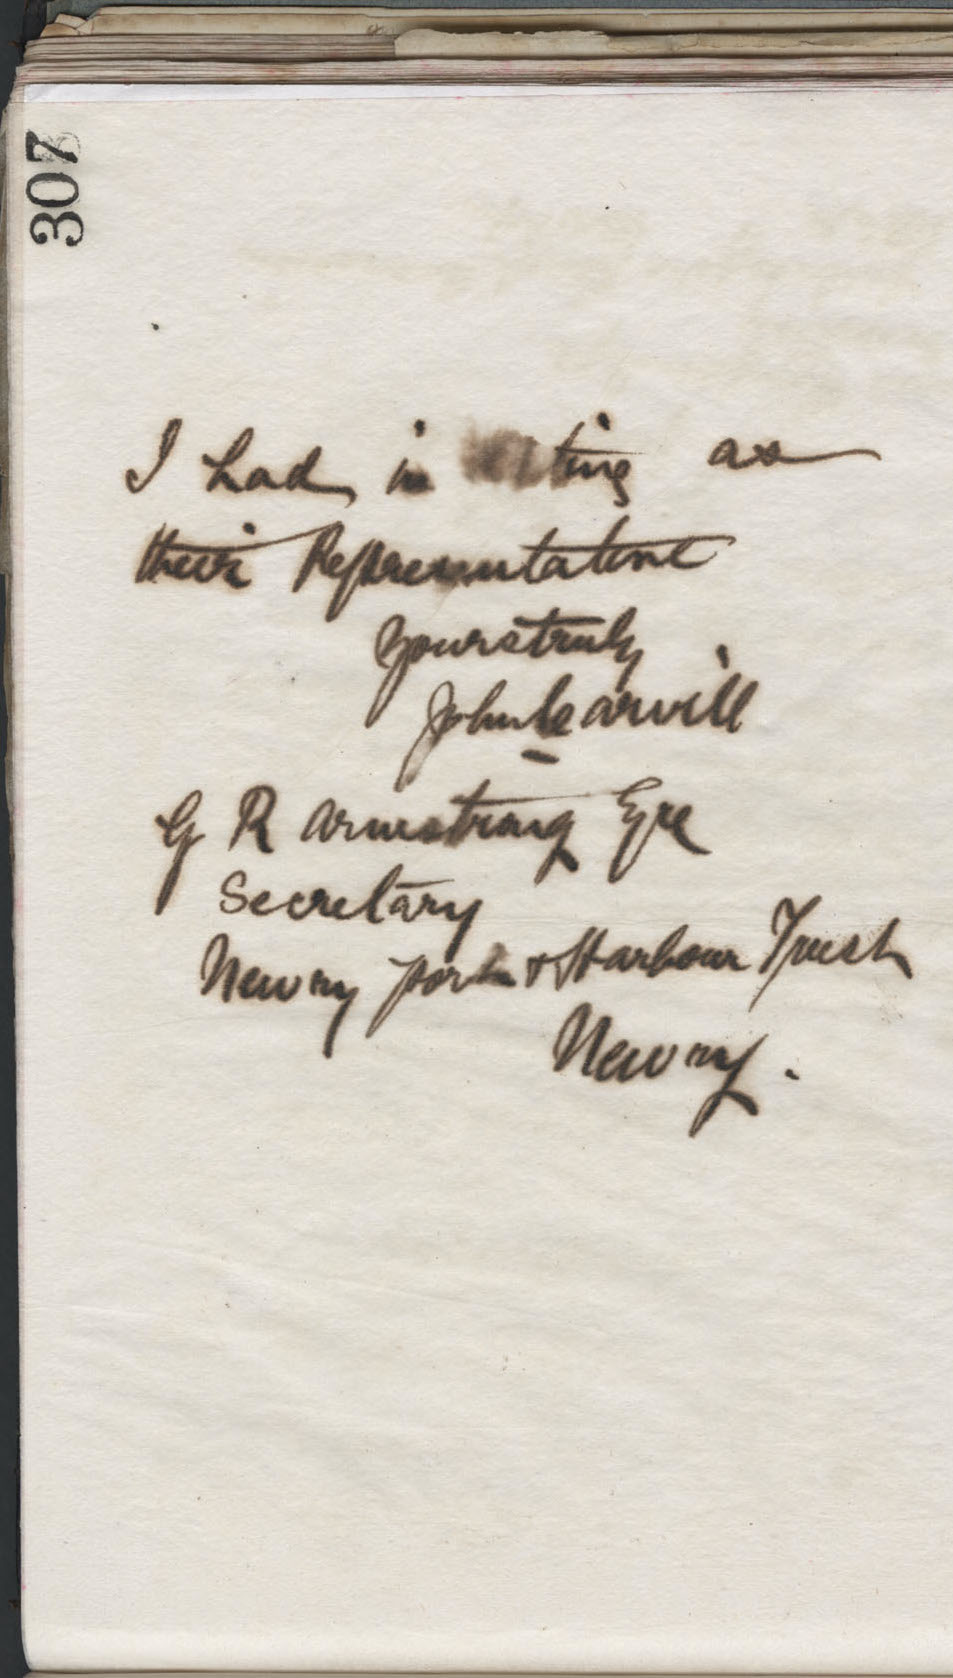 307
I had in as
their Representative
Yours truly
John Carvill
G R Armstrong Esqe
Secretary
Newry Port & Harbour Trust
Newry.